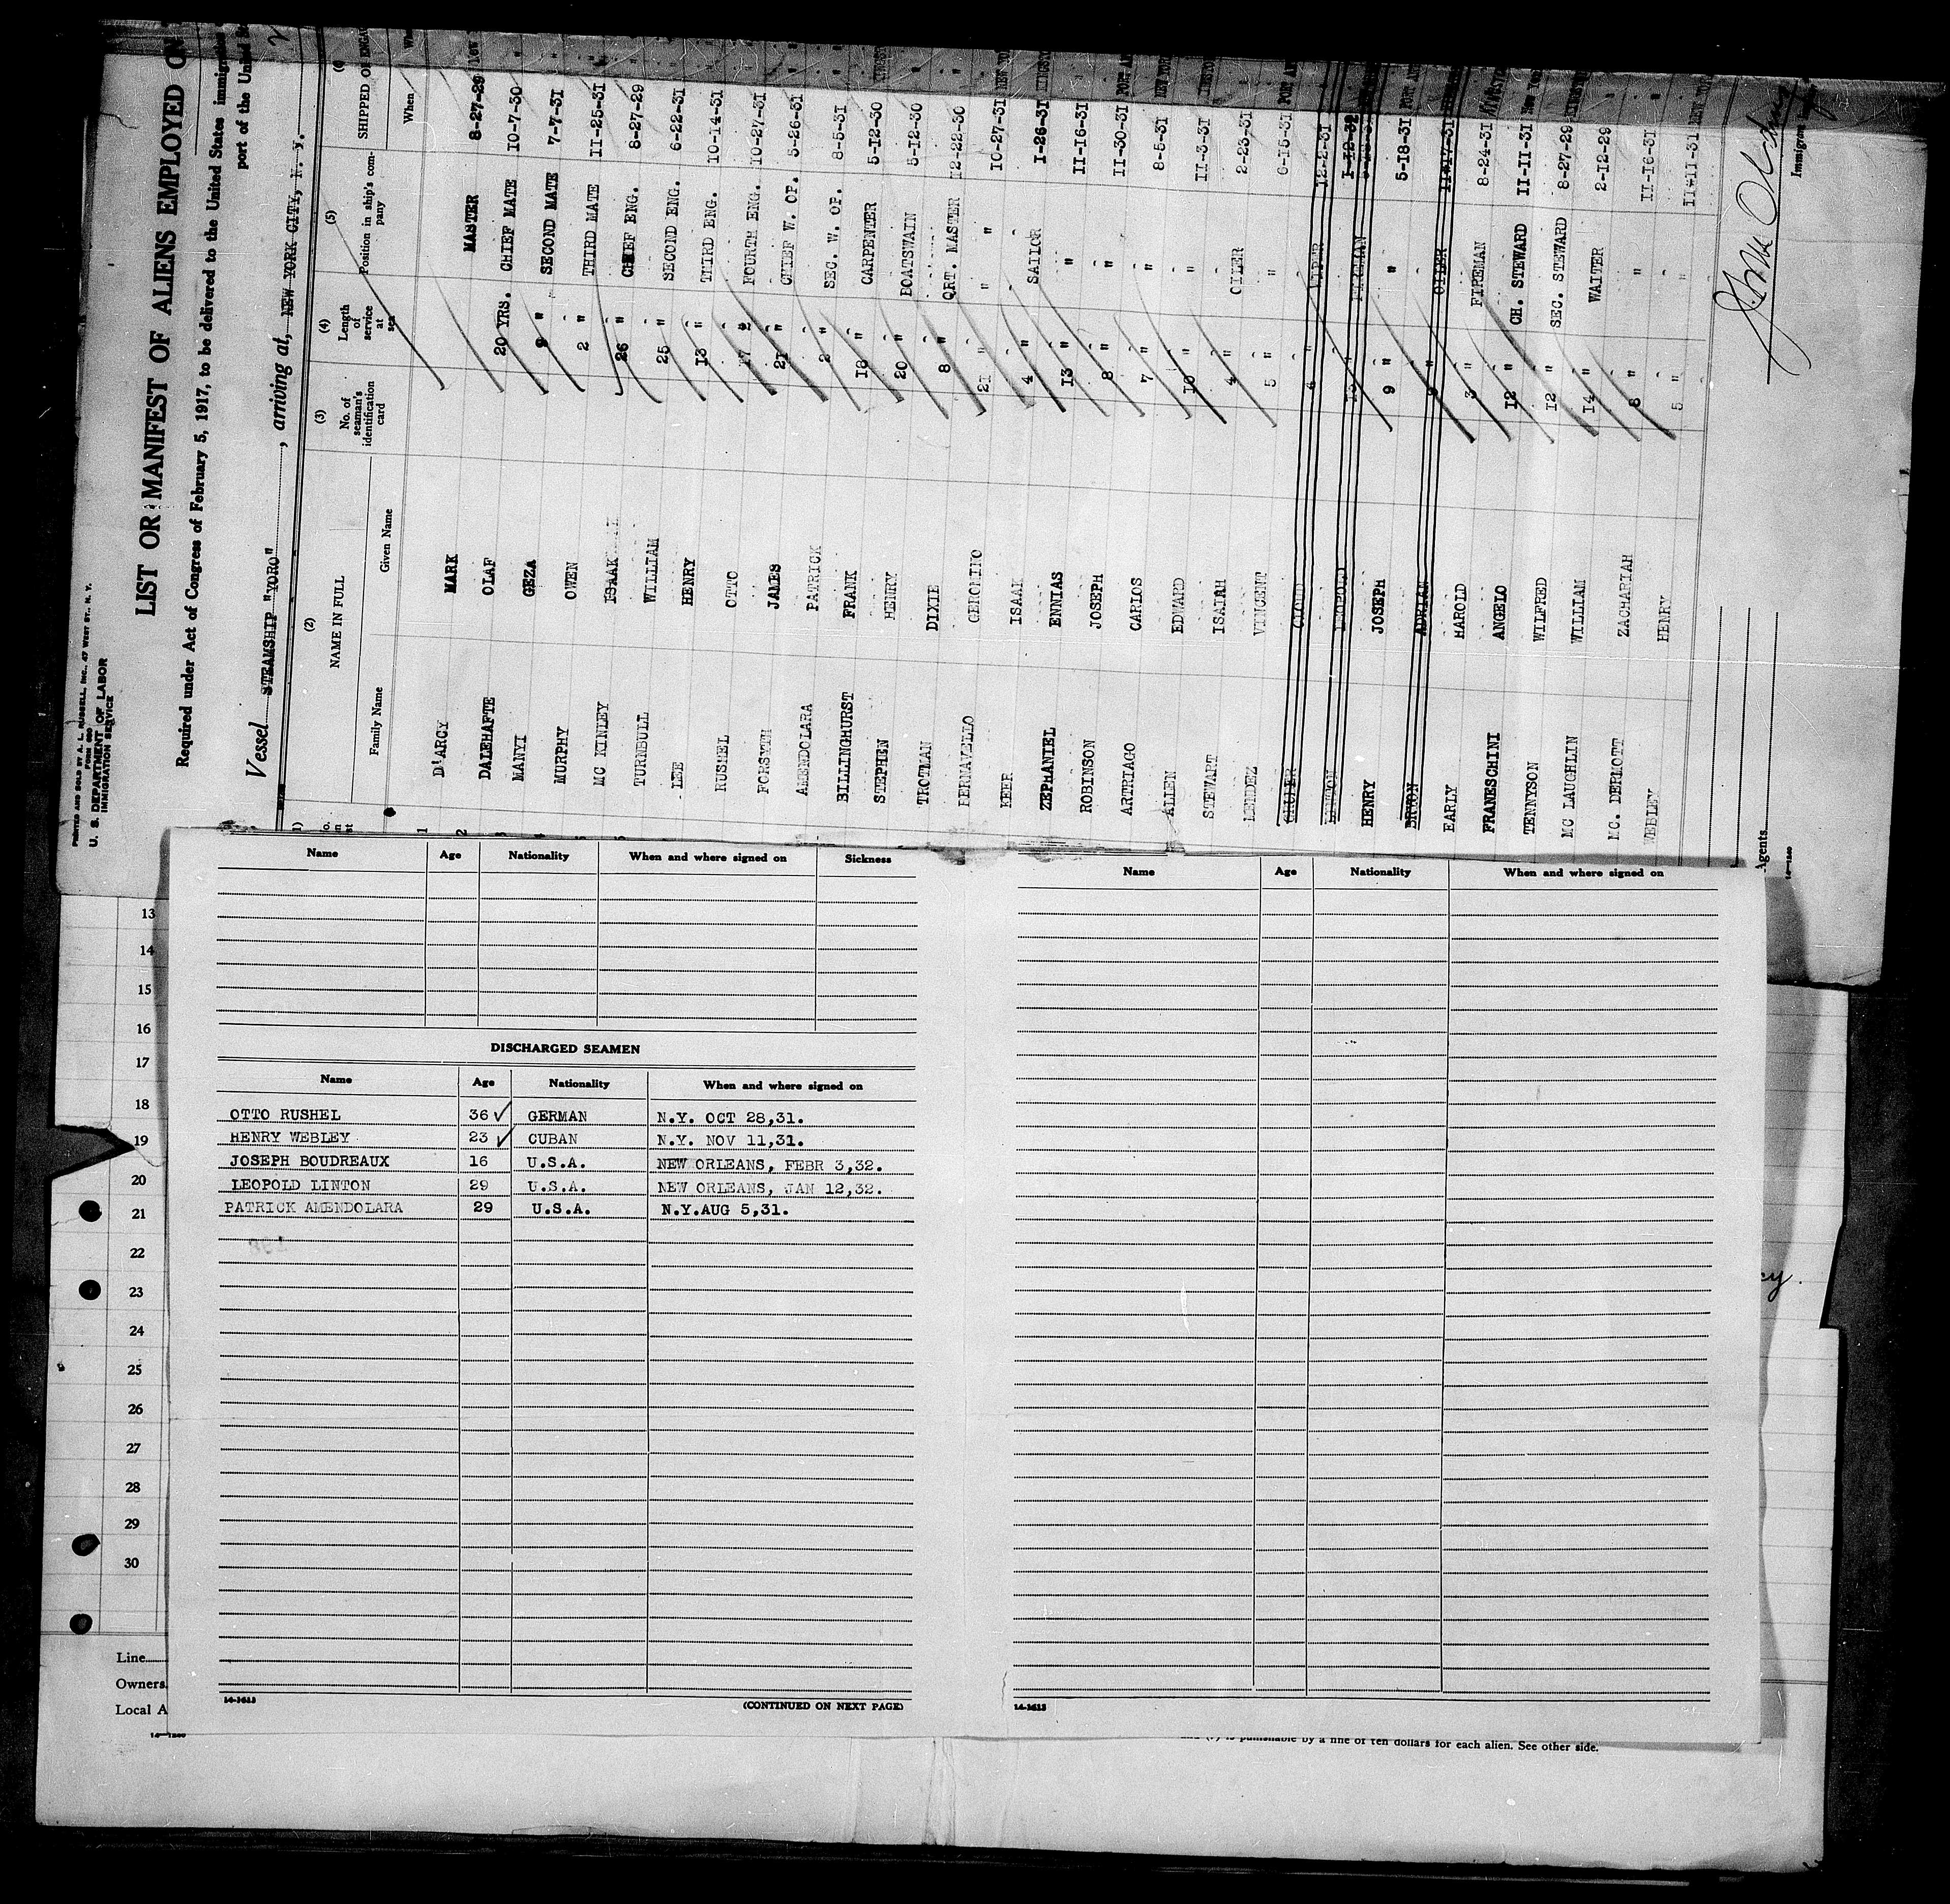 PRINTED AND SOLD BY A. L. RUSSELL, INC., 47 WEST ST., N. Y.
FORM 680
U. S. DEPARTMENT OF LABOR
IMMIGRATION SERVICE
LIST OR MANIFEST OF ALIENS EMPLOYED ON
Required under Act of Congress of February 5, 1917, to be delivered to the United States immigra
port of the United St
Vessel STEAMSHIP "YORO", arriving at, NEW YORK CITY, N. Y.
(2) (3) (4) (5) (6)
NAME IN FULL No. of seaman's identification card Length of service at sea Position in ship's company SHIPPED OR ENGAG
Family Name Given Name When
1 D'ARCY MARK MASTER 8-27-29
2 DALEHAFTE OLAF 20 YRS. CHIEF MATE 10-7-30
MANYI GEZA " SECOND MATE 7-7-31
MURPHY OWEN 2 " THIRD MATE 11-25-31
MC KINLEY ISAAK 26 " CHIEF ENG. 8-27-29
TURNBULL WILLIAM 25 " SECOND ENG. 6-22-31
LEE HENRY 13 " THIRD ENG. 10-14-31
RUSHEL OTTO 17 " FOURTH ENG. 10-27-31
FORSYTH JAMES 21 " CHIEF W. OP. 5-26-31
AMENDOLARA PATRICK 2 " SEC. W. OP. 8-5-31
BILLINGHURST FRANK 18 " CARPENTER 5-12-30
STEPHEN HENRY 20 " BOATSWAIN 5-12-30
TROTMAN DIXIE 8 " QRT. MASTER 12-22-30
BERNAVELLO GERONIMO 21 " " " 10-27-31 NEW YO
KEER ISAAK 4 " SAILOR 1-26-31 KINGSTO
ZEPHANIEL ENNIAS 13 " " 11-16-31
ROBINSON JOSEPH 8 " " 11-30-31 PORT AN
ARTRIAGO CARLOS 7 " " 8-5-31 NEW YORK
ALLEN EDWARD 10 " " 11-3-31
STEWART ISAIAH 4 " OILER 2-23-31
MENDEZ VINCENT 5 " " 6-15-31 PORT AN
CLOUD 6 " WIPER 12-2-31
LEOPOLD 13 " FIREMAN 1-12-32
HENRY JOSEPH 9 " " 5-18-31 PORT AN
BRYON ADRIAN " OILER 11-17-31
EARLY HAROLD 3 " FIREMAN 8-24-31
FRANESCHINI ANGELO 12 " CH. STEWARD 11-11-31 New York
TENNYSON WILFRED 12 " SEC. STEWARD 8-27-29 KINGSTO
MC LAUGHLIN WILLIAM 14 " WAITER 2-12-29
MC. DERMOTT ZACHARIAH 8 " " 11-16-31
WEBLEY HENRY 5 " " 11-11-31 NEW YOR
Immigrant
Agents
Name Age Nationality When and where signed on Sickness
DISCHARGED SEAMEN
Name Age Nationality When and where signed on
OTTO RUSHEL 36 ✓ GERMAN N.Y. OCT 28,31.
HENRY WEBLEY 23 ✓ CUBAN N.Y. NOV 11,31.
JOSEPH BOUDREAUX 16 U.S.A. NEW ORLEANS, FEBR 3,32.
LEOPOLD LINTON 29 U.S.A. NEW ORLEANS, JAN 12,32.
PATRICK AMENDOLARA 29 U.S.A. N.Y.AUG 5,31.
14-1613
(CONTINUED ON NEXT PAGE)
Name Age Nationality When and where signed on
14-1613
13
14
15
16
17
18
19
20
21
22
23
24
25
26
27
28
29
30
Line
Owners
Local A
14-1240
is punishable by a fine of ten dollars for each alien. See other side.